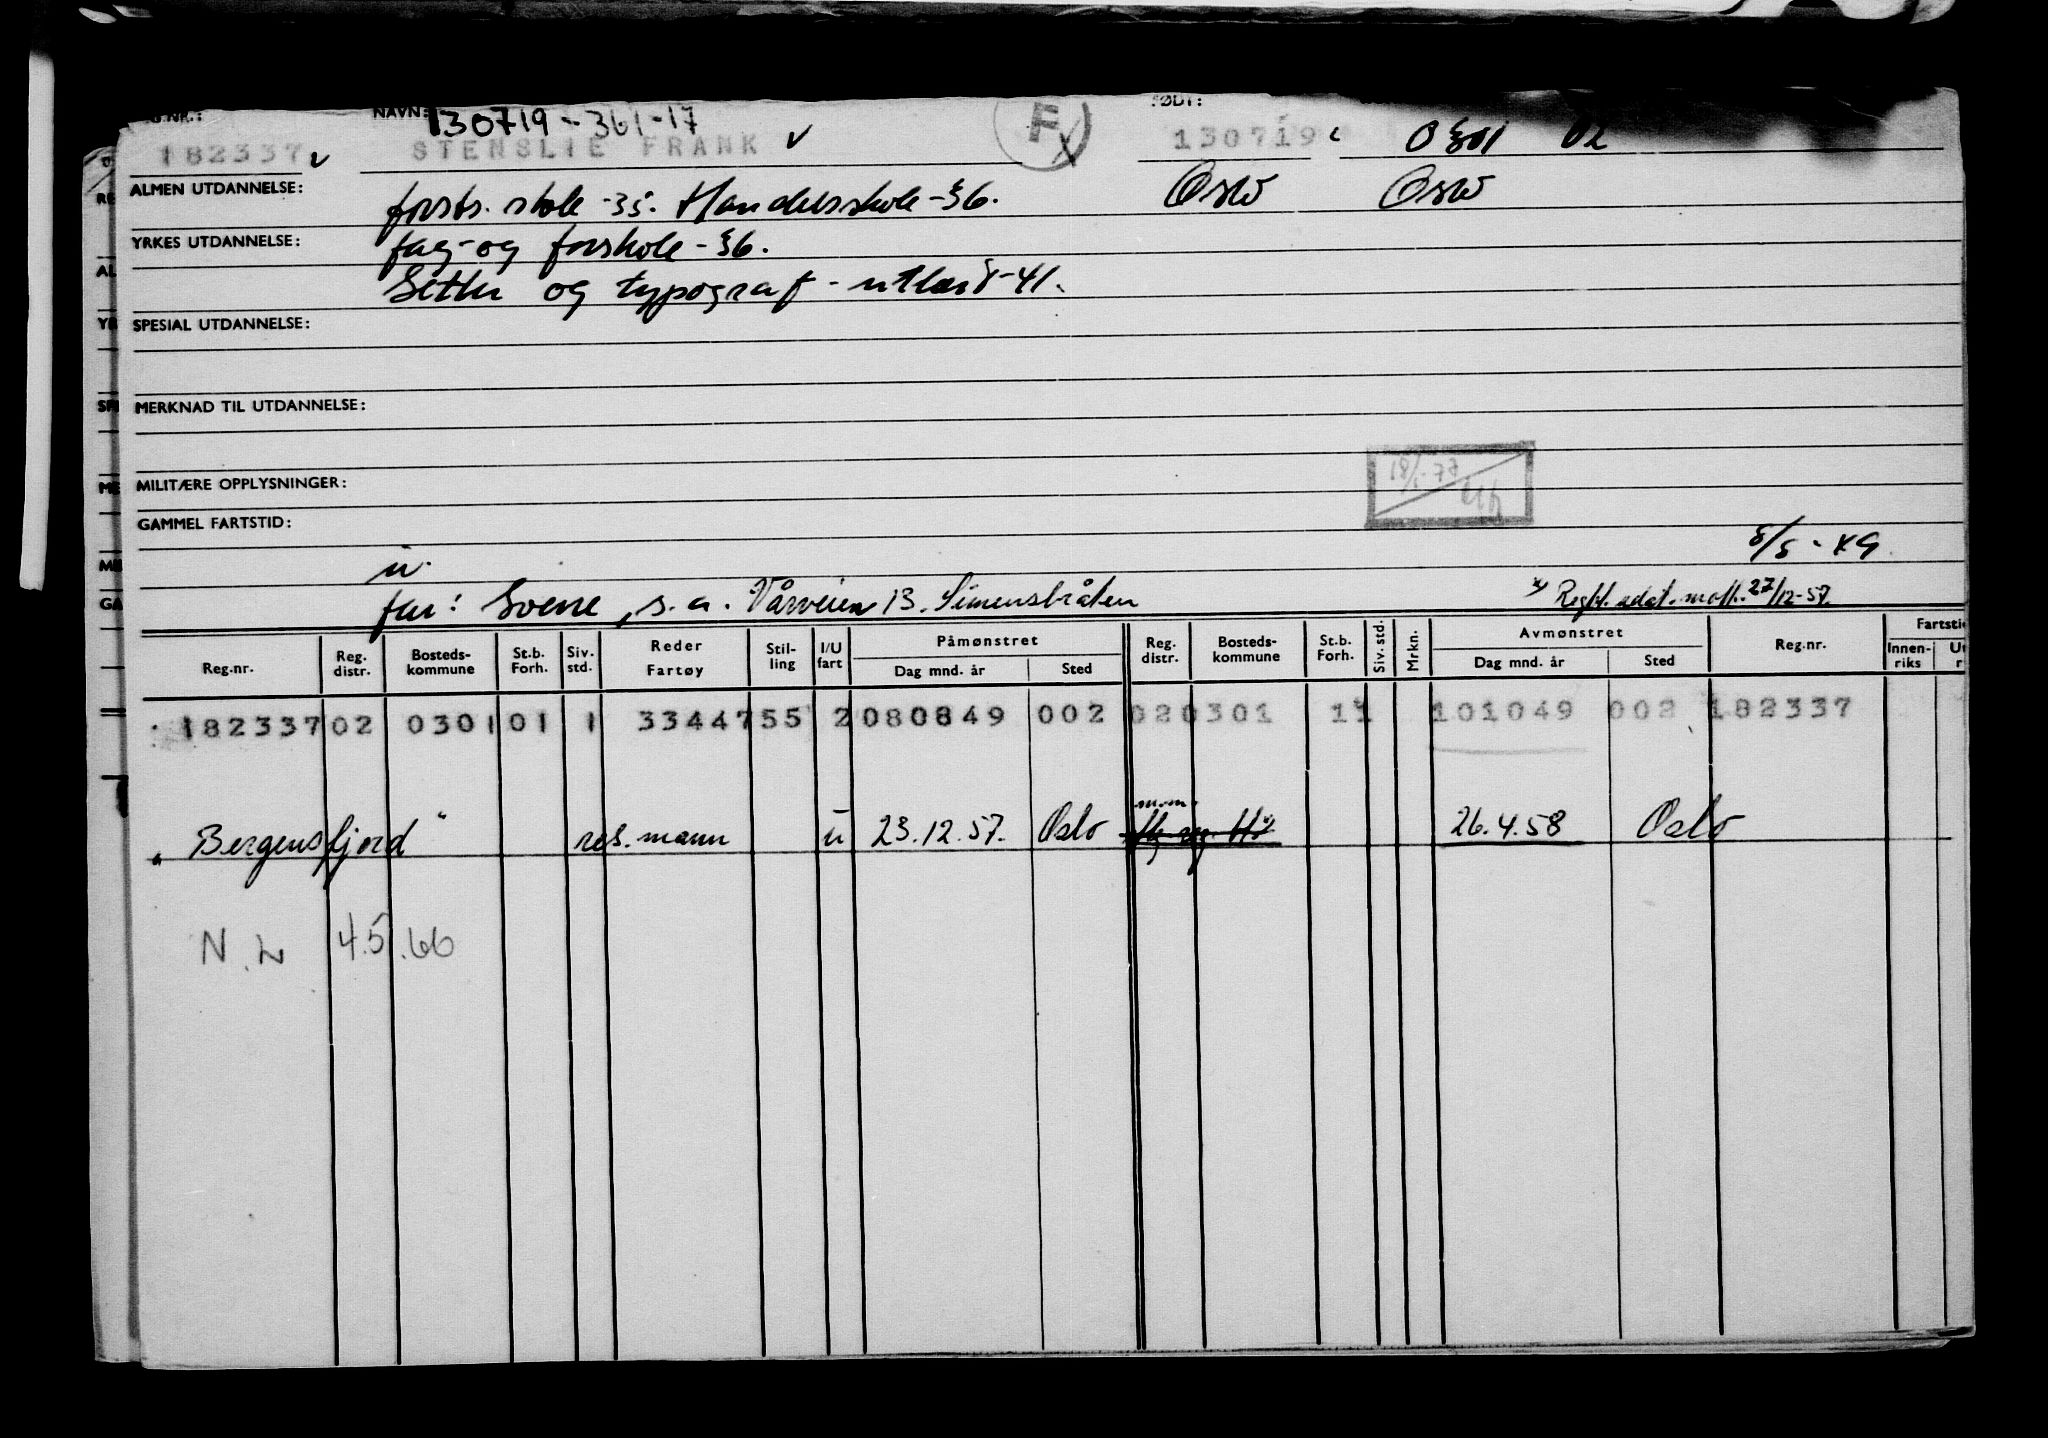 NAVN: FØDT:
130719-361-17
182337 STENSLIE FRANK F 130719 0301 02
ALMEN UTDANNELSE: forts. skole -35. Handelsskole -36. Oslo Oslo
YRKES UTDANNELSE: fag- og forskole -36.
Setter og typograf - utlærd -41.
SPESIAL UTDANNELSE:
MERKNAD TIL UTDANNELSE:
MILITÆRE OPPLYSNINGER: 18/1-77
GAMMEL FARTSTID:
u. 8/8-49
far: Sverre, s.a. Vårveien 13. Simensbråten x) Regbl. 27/12-57.
Reg.nr. Reg. distr. Bosteds-kommune St.b. Forh. Siv. std. Reder Fartøy Stil-ling I/U fart Påmønstret Dag mnd. år Sted Reg. distr. Bosteds-kommune St.b. Forh. Siv. std. Mrkn. Avmønstret Dag mnd. år Sted Reg.nr. Innen-riks
182337 02 0301 01 1 33447 55 2 080849 002 02 0301 11 101049 002 182337
"Bergensfjord" res. mann u 23.12.57. Oslo m.m. 26.4.58 Oslo
N.L 4.5.66